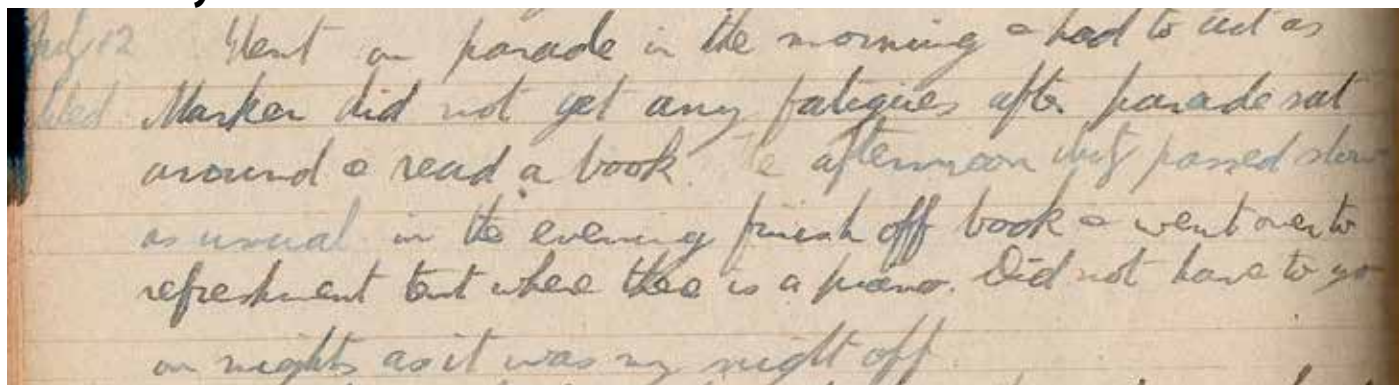 July 12 Went on parade in the morning & had to act as
Wed Marker did not get any fatigues after parade sat
around & read a book. The afternoon passed slow
as usual in the evening finish off book & went over to
refreshment tent where thee is a piano. Did not have to go
on nights as it was my night off.